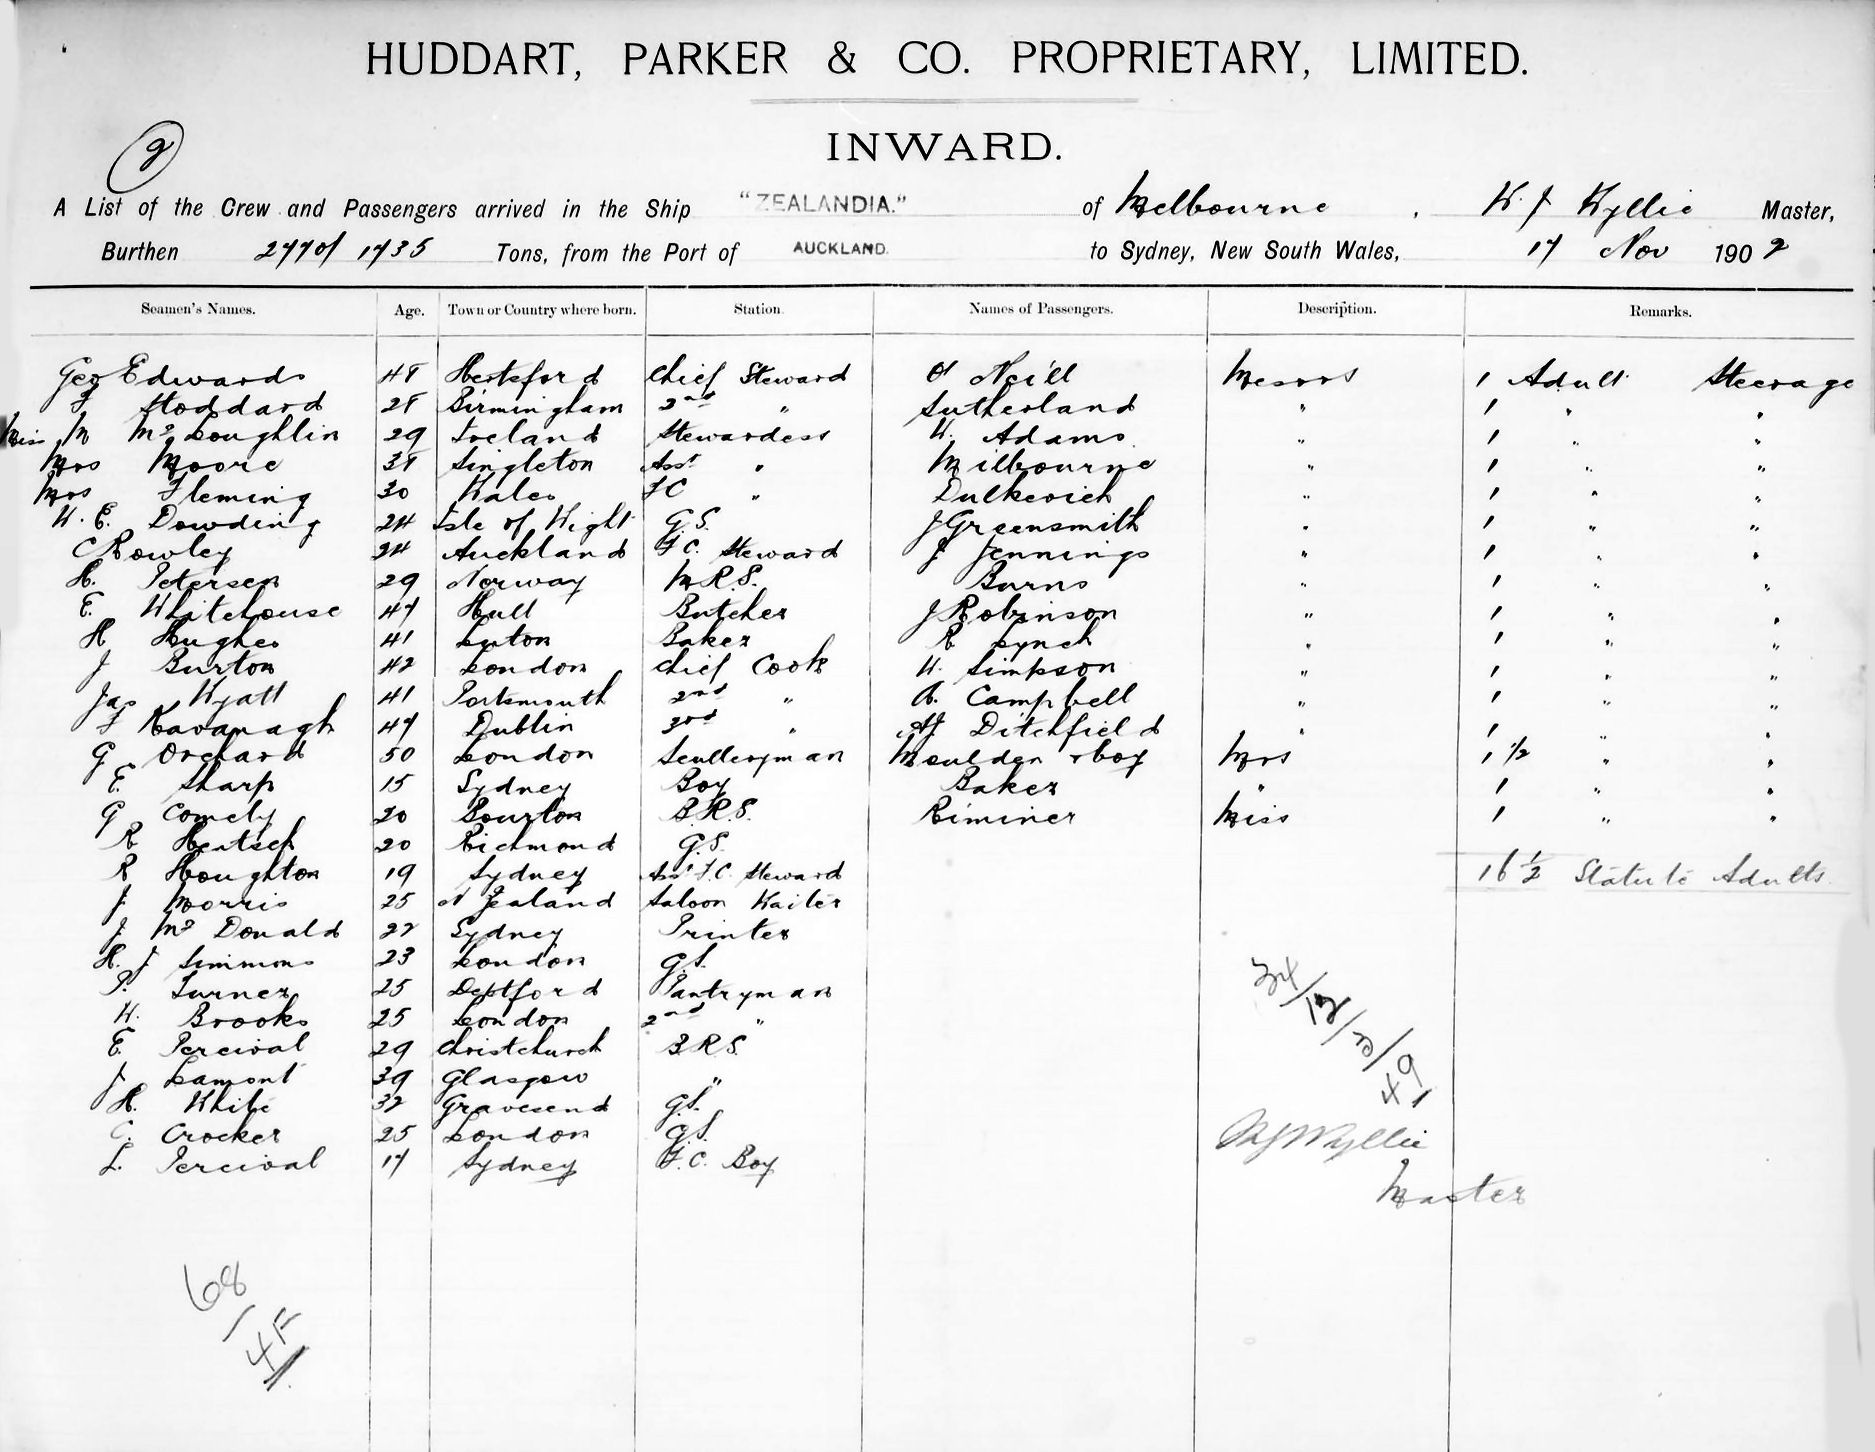 HUDDART, PARKER & CO. PROPRIETARY, LIMITED.
INWARD.
2
A List of the Crew and Passengers arrived in the Ship "ZEALANDIA." of Melbourne, W. J Wyllie Master,
Burthen 2770/1735 Tons, from the Port of AUCKLAND. to Sydney, New South Wales, 17 Nov 1902
Seamen's Names. Age. Town or Country where born. Station. Names of Passengers. Description. Remarks.
Geo Edwards 48 Hertsford Chief Steward O Neill Messrs 1 Adult Steerage
J Stoddard 28 Birmingham 2nd " Sutherland " 1 " "
Miss M McLoughlin 29 Ireland Stewardess W. Adams " 1 " "
Mrs Moore 38 Singleton Asst " Milbourne " 1 " "
Mrs Fleming 30 Wales FC " Dulkevich " 1 " "
W. E. Dowding 24 Isle of Wight G.S. J Greensmith " 1 " "
C Rowley 24 Auckland F.C. Steward J Jennings " 1 " "
H. Petersen 29 Norway M.R.S. Burns " 1 " "
E. Whitehouse 47 Hull Butcher J Robinson " 1 " "
H Hughes 41 Luton Baker R Lynch " 1 " "
J Burton 42 London Chief Cook W. Simpson " 1 " "
Jas Wyatt 41 Portsmouth 2nd " A. Campbell " 1 " "
F Kavanagh 47 Dublin 3rd " Ditchfield " 1 " "
G Orchard 50 London Sculleryman Moulden & boy Mrs 1 1/2 " "
E. Sharp 15 Sydney Boy Baker " 1 " "
G Comely 20 Bourton B.R.S. Riminer Miss 1 " "
R Hentsch 20 Richmond G.S.
R Houghton 19 Sydney Asst F.C. Steward 16 1/2 Statute Adults
J Morris 25 N Zealand Saloon Waiter
J McDonald 22 Sydney Printer
H. J Simmons 23 London G.S.
P. Turner 25 Deptford Pantryman
W. Brooks 25 London 2nd "
E. Percival 29 Christchurch B.R.S.
J. Lamont 39 Glasgow "
H. White 32 Gravesend G.S.
C. Crocker 25 London G.S.
L. Percival 17 Sydney F.C. Boy
34/12/3/49
W J Wyllie
Master
68
4F